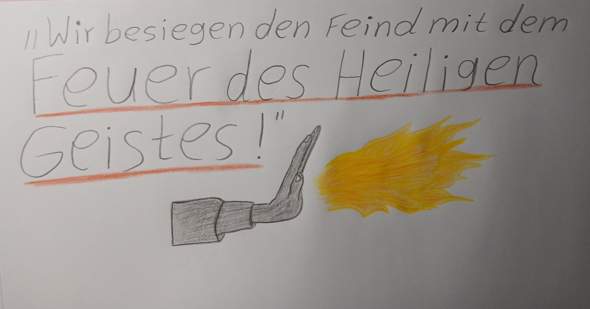 „Wir besiegen den Feind mit dem
Feuer des Heiligen
Geistes!"